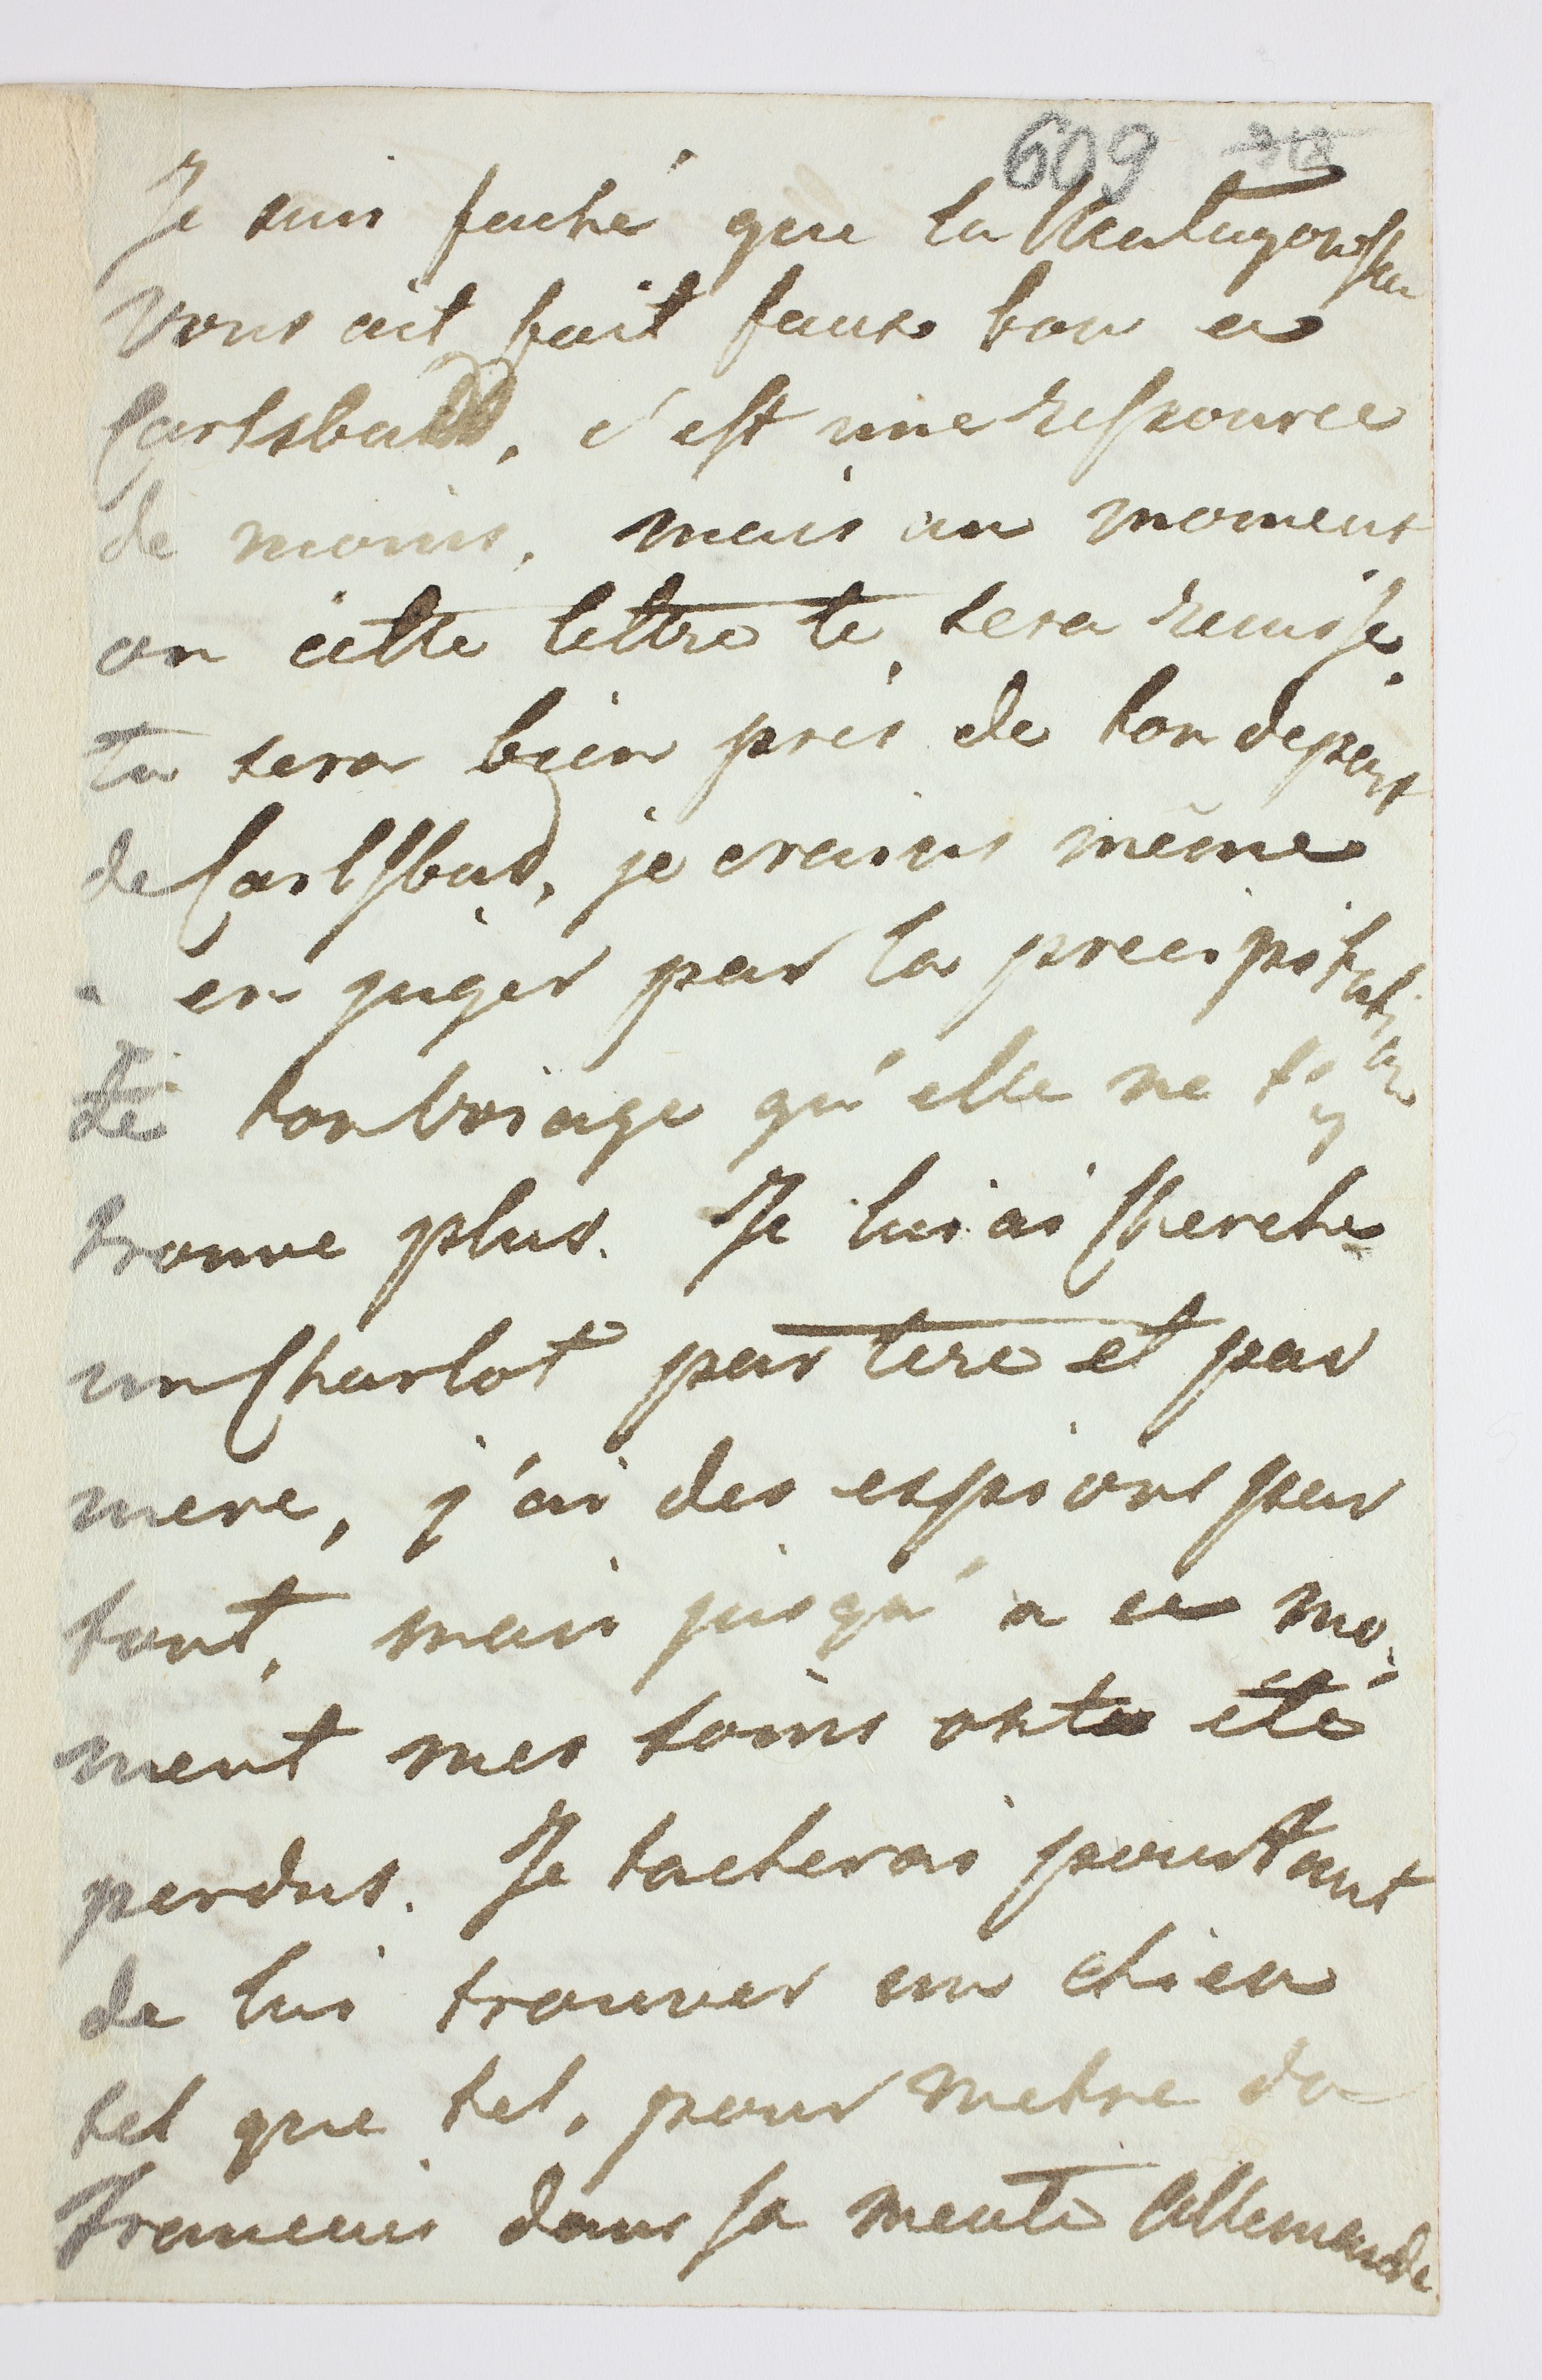 609 318
Je suis faché que la
vous ait fait faux bon a
Carlsbad, c'est une ressource
de moins, mais au moment
ou cette lettre te sera remise,
tu sera bien près de ton depart
de Carlsbad, je crains même
a en juger par la precipitation
de ton voiage qu'elle ne t'y
trouve plus. Je lui ai cherche
un Charlot par tere et par
mere, j'ai des espions par
tout, mais jusqu'a ce mo-
ment mes soins ont été
perdus. Je tacherai pourtant
de lui trouver un chien
tel que tel, pour metre du
francais dans sa meute Allemande